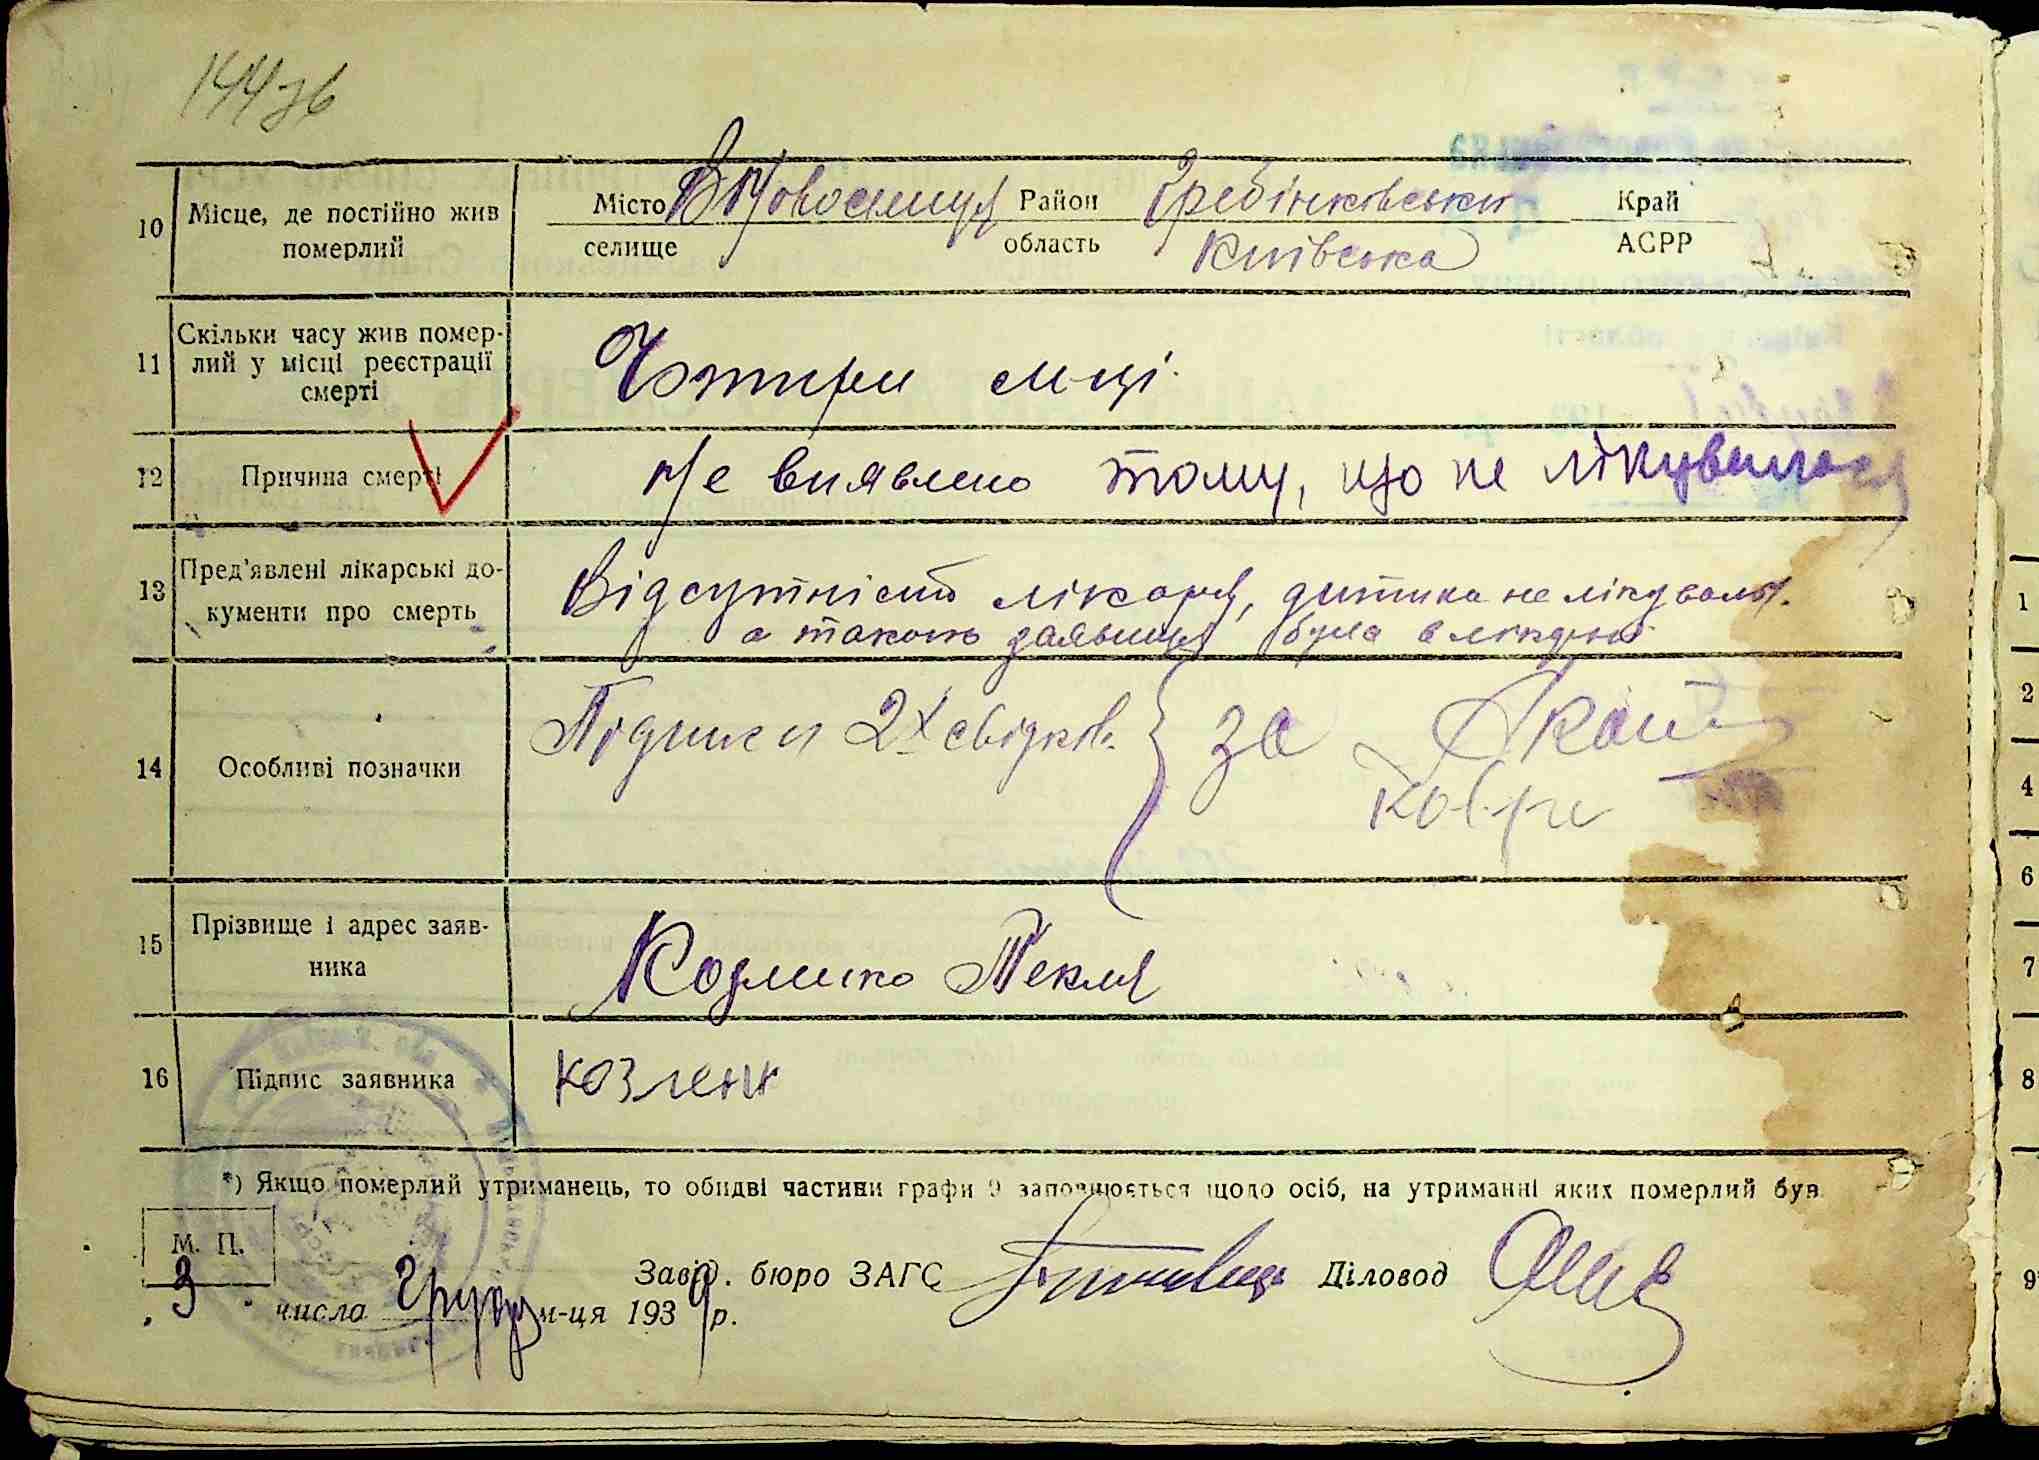 144зв
10 Місце, де постійно жив померлий
Місто В Новоселиця Район Гребінковський Край
селище область Київська АСРР
11 Скільки часу жив помер-
лий у місці реєстрації
смерті
Чотири м-ці.
12 Причина смерті
Не виявлено тому, що не лікувалася
13 Пред'явлені лікарські до-
кументи про смерть
Відсутність лікаря, дитина не лікувалась.
а також заявниця була в
14 Особливі позначки
Підписи 2х свідків. за
15 Прізвище і адрес заяв-
ника
Козленко Текля
16 Підпис заявника
козленк
*) Якщо померлий утриманець, то обидві частини графи 9 заповнюється щодо осіб, на утриманні яких померлий був
М. П.
Завід. бюро ЗАГС Діловод
3 числа Грудн м-ця 1939 р.
1
2
4
6
7
8
9